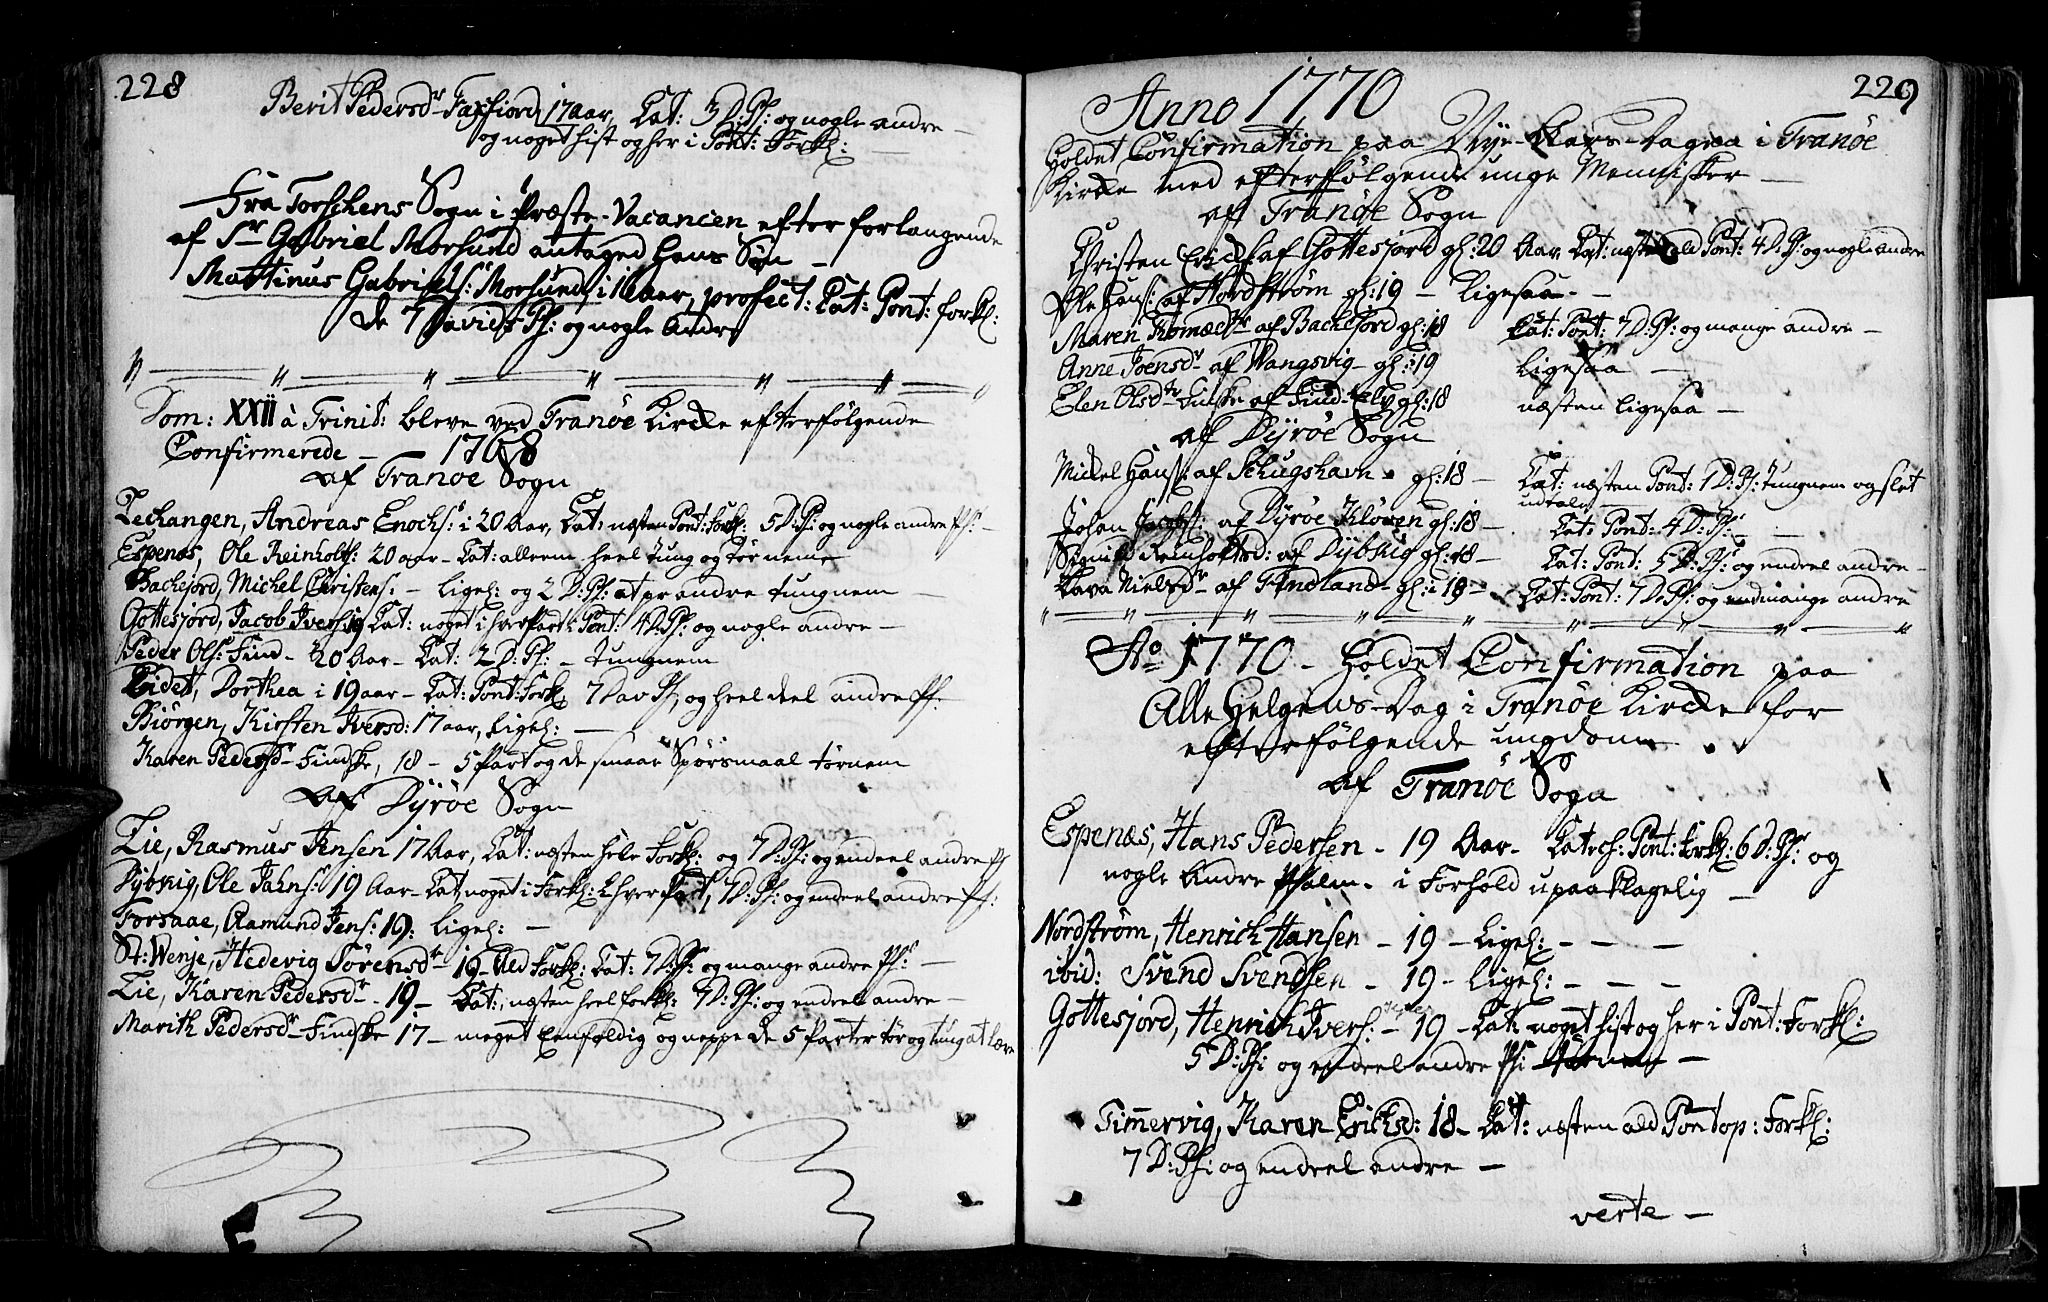 228
Berit Pedersdr Faxfiord, 17 aar, Cat: 3 D: Ps: og nogle andre –
og noget hist og her i Pont: Forkl:
Fra Torschens Sogn i Præste-Vacancen efter forlangende
af Sr Gabriel Morsund antaged hans Søn –
Martinus Gabriels: Morsund, i 16 aar, profect: Cat: Pont: forkl:
de 7 Davids Ps: og nogle Andre
Dom: XXII à Trinit: bleve ved Tranöe Kirke efterfølgende
Confirmerede – 1768
af Tranöe Sogn
Lechangen, Andreas Enochs: i 20 Aar, Cat: næsten Pont: forkl: 5 D: Ps: og nogle andre Ps: –
Espenæs, Ole Reinholts: 20 aar – Cat: alleene heel tung og tør nemme
Bachejord, Michel Christens: – Ligel: og 2 D: Ps: at pr andre tungnem –
Gottesjord, Jacob Ivers: 19 Cat: noget i hver Part i Pont: 4 D: Ps: og nogle andre –
Peder Ols: Find – 20 Aar – Cat: 2 D: Ps: – tungnem
Eidet, Dorthea i 19 aar – Cat: Pont: Forkl 7 Dav Ps, og heel deel andre Ps.
Biörgen, Kirsten Iversd: 17 aar, Ligel: –
Karen Pedersdr Findske, 18 – 5 Part og de smaae Spørsmaal tørnem
af Dyröe Sogn
Lie, Rasmus Jensen 17 Aar, Cat: næsten hele Forkl: og 7 D: Ps: og endeel andre Ps
Dybvig, Ole Jahns: 19 Aar – Cat noget i Forkl: Ehver Part, 7 D: Ps: og endeel andre Ps:
Forsaae, Aamund Jens: 19: Ligel: –
St: Wenje, Hedevig Sörensdr – 19 – Ald Forkl: Cat: 7 D: Ps: og mange andre Ps: –
Lie, Karen Pedersdr – 19 – Cat:, næsten heel forkl: 7 D: Ps: og endeel andre –
Marith Pedersdr Findske 17 – meget Eenfoldig og neppe de 5 Parter tør og tung at lære
229
Anno 1770
Holdet Confirmation paa Nye-Aars-Dag i Tranöe
Kirke med efterfølgende unge Mennisker –
af Tranöe Sogn
Christen Erichs: af Gottesjord gl: 20 Aar Cat: næsten ald Pont: 4 D: Ps: og nogle andre
Ole Hans: af Nordström gl: 19 – Ligesaa –
Maren Thomædtr af Bachejord gl: 18 Cat: Pont: 7 D: Ps: og mange andre –
Anne Joensdr af Wangsvig – gl: 19 Ligesaa –
Elen Olsdtr Finske af Find-Elv gl: 18 næsten ligesaa –
af Dyröe Sogn
Mickel Hans: af Schugshavn – gl: 18 – Cat: næsten Pont: 1 D: Ps: tungnem og slet
udtaler –
Johan Jacobs: af Dyröe Klöven gl: 18 – Cat: Pont: 4 D: Ps: –
Reinholtsd: af Dybvig gl: 18 – Cat: Pont: 5 D: Ps: og endeel andre –
Lava Nielsdr af Findland – gl: 18 – Cat: Pont: 7 D: Ps: og mange andre
Ao 1770 – Holdet Confirmation paa
Alle Helgens-Dag i Tranöe Kirke for
efterfølgende ungdom
af Tranöe Sogn
Espenæs, Hans Pedersen – 19 Aar – Catech: Pont: Forkl: 6 D: Ps: og
nogle Andre Psalm. i Forhold upaaklagelig –
Nordström, Henrich Hansen – 19 – Ligel: – – –
ibid: Svend Svendsen – 19 – Ligel: – – –
Gottesjord, Henrich Ivers: – 19 – Cat: noget hist og her i Pont: Forkl:
5 D: Ps: og endeel andre Ps: –
Timmervig, Karen Erichsd: 18 – Cat: næsten ald Pontop: Forkl:
7 D: Ps: og endeel andre –
verte –